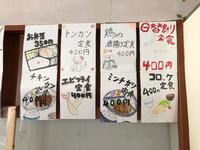 お弁当
350円
トンカツ
定食
400円
鶏の
唐揚げ定食
400円
日替り
定食
400円
チキン
エビフライ
定食
400円
ミンチカツ
コロッケ
定食
400円